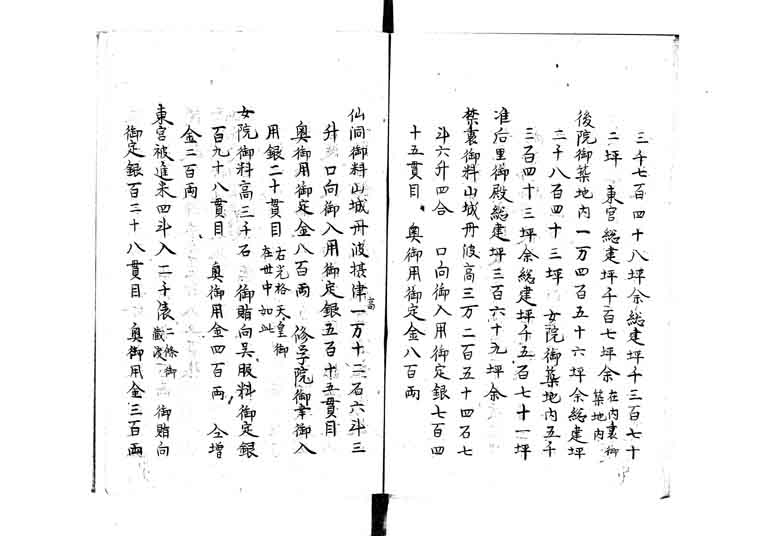 三千七百四十八坪余総建坪千三百七十
二坪　東宮総建坪千百七坪余在内裏御築地内
後院御築地内一万四百五十六坪余総建坪
二千八百四十三坪　女院御築地内五千
三百四十三坪余総建坪千五百七十一坪
准后里御殿総建坪三百六十九坪余
禁裏御料山城丹波高三万二百五十四石七
斗六升四合　口向御入用御定銀七百四
十五貫目　奥御用御定金八百両
仙洞御料山城丹波摂津高一万十二石六斗三
升　口向御入用御定銀五百十五貫目
奥御用御定金八百両　修学院御幸御入
用銀二十貫目右光格天皇御在世中如此
女院御料高三千石　御賄向呉服料御定銀
百九十八貫目　奥御用金四百両　仝増
金二百両
東宮被進米四斗入二千俵二條御蔵渡　御賄向
御定銀百二十八貫目　奥御用金三百両